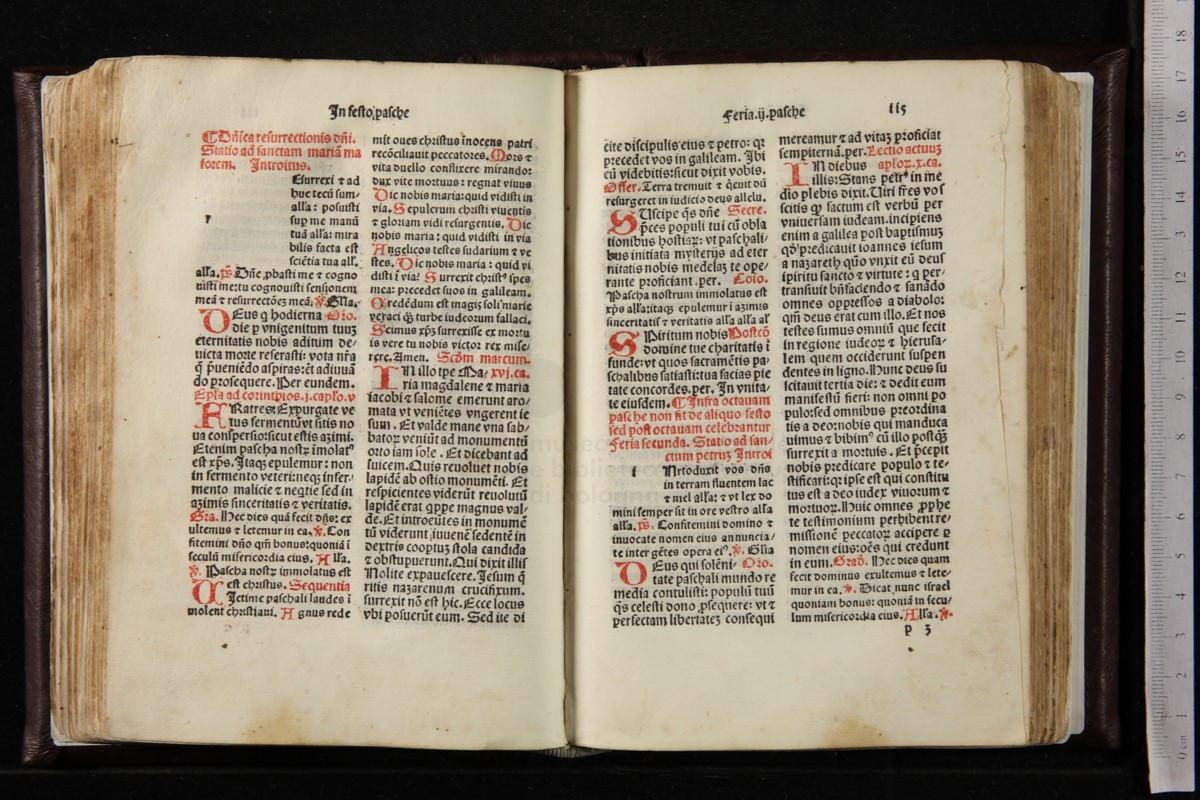 In festo pasche
Dñica resurrectionis dñi.
Statio ad sanctam mariã ma
iorem. Introitus.
Esurrexi ⁊ ad
huc tecũ sum
alła: posuisti
sup me manũ
tuã alła: mira
bilis facta est
sciẽtia tua alł.
alła. ps. Dñe ꝓbasti me ⁊ cogno
uisti me: tu cognouisti sessionem
meã ⁊ resurrectõeʒ meã. ℣. Glia.
DEus q̃ hodierna Oro.
die p vnigenitum tuuʒ
eternitatis nobis aditum de
uicta morte reserasti: vota nr̃a
q̃ pueniẽdo aspiras: ẽt adiuuã
do prosequere. Per eundem.
Epła ad corinthios.j.capło.v
FRatres: Expurgate ve
tus fermentũ vt sitis no
ua conspersio: sicut estis azimi.
Etenim pascha nostꝝ imolatꝰ
est xp̃s. Itaqʒ epulemur: non
in fermento veteri: neqʒ infer/
mento malicie ⁊ neq̃tie sed in
azimis sinceritatis ⁊ veritatis.
Gra. Hec dies quã fecit dñs: ex
ultemus ⁊ letemur in ea. ℣. Con
fitemini dño qm̃ bonus: quoniã ĩ
seculũ misericordia eius. Alła.
℣. Pascha nostꝝ immolatus est
est christus. Sequentia
VIctime paschali laudes ĩ
molent christiani. Agnus rede
mit oues christus inocens patri
recõciliauit peccatores. Mors ⁊
vita duello conflixere mirando:
dux vite mortuus: regnat viuus
Dic nobis maria: quid vidisti in
via. Sepulcrum christi viuentis
⁊ gloriam vidi resurgentis. Dic
nobis maria: quid vidisti in via
Angelicos testes sudarium ⁊ ve
stes. Dic nobis maria: quid vi
disti ĩ via? Surrexit christꝰ spes
mea: precedet suos in galileam.
Credẽdum est magis soli marie
veraci q̃ʒ turbe iudeorum fallaci.
Scimus xp̃s surrexisse ex mortu
is vere tu nobis victor rex mise/
rere. Amen. Scðm marcum.
IN illo tp̃e Ma/ xvj.ca.
ria magdalene ⁊ maria
iacobi ⁊ salome emerunt aro/
mata vt veniẽtes vngerent ie
sum. Et valde mane vna sab/
batoꝝ veniũt ad monumentũ
orto iam sole. Et dicebant ad
inuicem. Quis reuoluet nobis
lapidẽ ab ostio monumẽti. Et
respicientes viderũt reuolutũ
lapidẽ erat q̃ppe magnus val/
de. Et introeũtes in monumẽ
tũ viderunt iuuenẽ sedentẽ in
dextris coopertuʒ stola candida
⁊ obstupuerunt. Qui dixit illis
Nolite expauescere. Iesum q̃
ritis nazarenum crucifixum.
surrexit nõ est hic. Ecce locus
vbi posuerũt eum. Sed ite di
Feria.ij.pasche
115
cite discipulis eius ⁊ petro: qꝛ
precedet vos in galileam. Ibi
eũ videbitis: sicut dixit vobis.
Offer. Terra tremuit ⁊ q̃euit dũ
resurgeret in iudicio deus allelu.
SUscipe q̃s dñe Secre.
p̃ces populi tui cũ obla
tionibus hostiaꝝ: vt paschali/
bus initiata mysterijs ad eter
nitatis nobis medelaʒ te ope/
rante proficiant. per. Coio.
Pascha nostrum immolatus est
xp̃s alła: itaqʒ epulemur ĩ azimis
sinceritatis ⁊ veritatis alła alła al
SPiritum nobis Postcõ
domine tue charitatis ĩ
funde: vt quos sacramẽtis pa/
schalibus satiasti: tua facias pie
tate concordes. per. In vnita/
te eiusdem. Infra octauam
pasche non fit de aliquo festo
sed post octauam celebrantur
Feria secunda. Statio ad san/
ctum petruʒ Introi
INtroduxit vos dñs
in terram fluentem lac
⁊ mel alła: ⁊ vt lex do
mini semper sit in ore vestro alła
alła. ps. Confitemini domino ⁊
inuocate nomen eius annuncia/
te inter gẽtes opera eiꝰ. ℣. Glia
DEus qui solẽni/ Oro.
tate paschali mundo re
media contulisti: populũ tuũ
q̃s celesti dono ꝓsequere: vt ⁊
perfectam libertateʒ consequi
mereamur ⁊ ad vitaʒ proficiat
sempiternã. per. Lectio actuuʒ
IN diebus aploꝝ.x.ca.
illis: Stans petrꝰ in me
dio plebis dixit. Viri fr̃es vos
scitis qꝛ factum est verbũ per
vniuersam iudeam. incipiens
enim a galilea post baptismuʒ
qð p̃dicauit ioannes iesum
a nazareth quõ vnxit eũ deus
spiritu sancto ⁊ virtute: q per/
transiuit bñfaciendo ⁊ sanãdo
omnes oppressos a diabolo:
qm̃ deus erat cum illo. Et nos
testes sumus omniũ que fecit
in regione iudeoꝝ ⁊ hierusa/
lem quem occiderunt suspen
dentes in ligno. Hunc deus su
scitauit tertia die: ⁊ dedit eum
manifestũ fieri: non omni po
pulo: sed omnibus preordina
tis a deo: nobis qui manduca
uimus ⁊ bibimꝰ cũ illo postqʒ
surrexit a mortuis. Et p̃cepit
nobis predicare populo ⁊ te/
stificari: qꝛ ipse est qui constitu
tus est a deo iudex viuorum ⁊
mortuoꝝ. Huic omnes ꝓphe
te testimonium perhibent re/
missionẽ peccatoꝝ accipere p
nomen eius: oẽs qui credunt
in eum. Grað. Hec dies quam
fecit dominus exultemus ⁊ lete/
mur in ea. ℣. Dicat nunc israel
quoniam bonus: quoniã in secu/
lum misericordia eius. Alła. ℣.
p 3